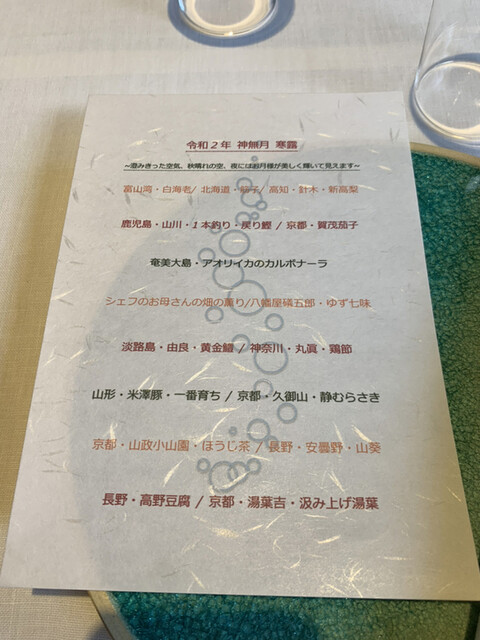 令和２年 神無月 寒露
~澄みきった空気、秋晴れの空、夜にはお月様が美しく輝いて見えます~
富山湾・白海老 / 北海道・帆子 / 高知・針木・新高梨
鹿児島・山川・1本釣り・戻り鰹 / 京都・賀茂茄子
奄美大島・アオリイカのカルボナーラ
シェフのお母さんの畑の薫り/八幡屋礒五郎・ゆず七味
淡路島・由良・黄金鱧 / 神奈川・丸眞・鶏節
山形・米澤豚・一番育ち / 京都・久御山・静むらさき
京都・山政小山園・ほうじ茶 / 長野・安曇野・山葵
長野・高野豆腐 / 京都・湯葉吉・汲み上げ湯葉